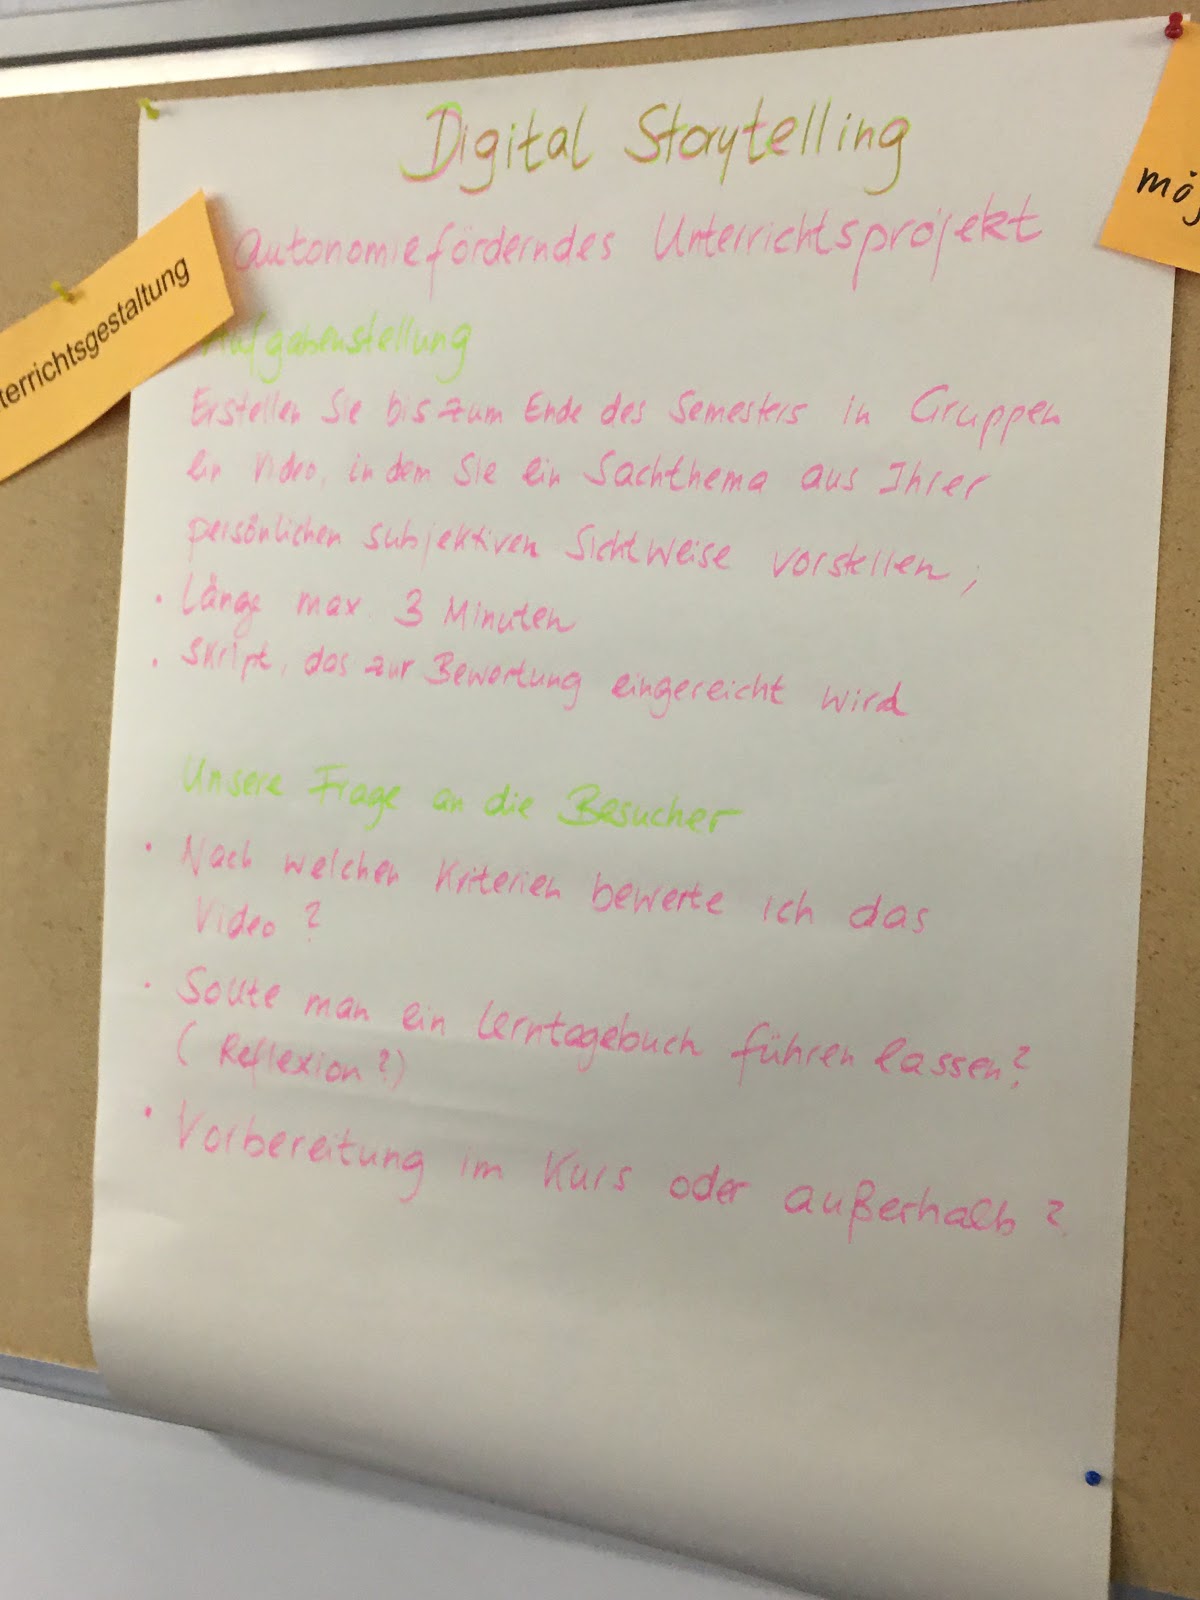 Digital Storytelling
Autonomieförderndes Unterrichtsprojekt
Aufgabenstellung
Erstellen Sie bis zum Ende des Semesters in Gruppen
ein Video, in dem Sie ein Sachthema aus Ihrer
persönlichen subjektiven Sichtweise vorstellen,
• Länge max. 3 Minuten
• Skript, das zur Bewertung eingereicht wird
Unsere Frage an die Besucher
• Nach welchen Kriterien bewerte ich das
Video?
• Sollte man ein Lerntagebuch führen lassen?
(Reflexion?)
• Vorbereitung im Kurs oder außerhalb?
terrichtsgestaltung
mög